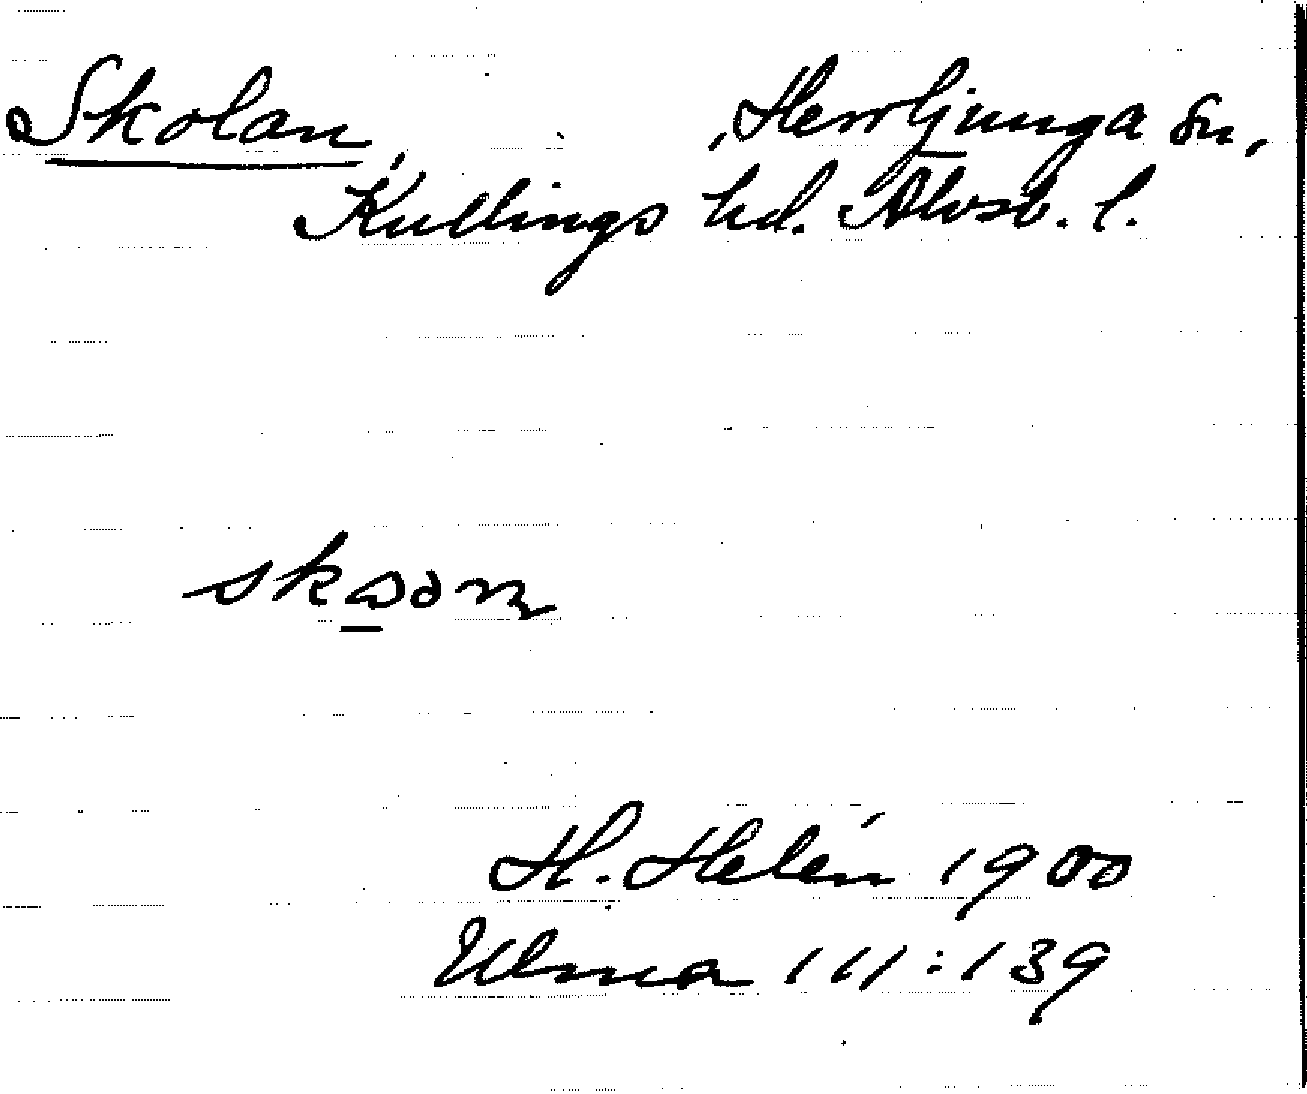 Skolan, Herrljunga sn,
Kullings hd. Älvsb. l.
H. Helén 1900
Ulma 111:139